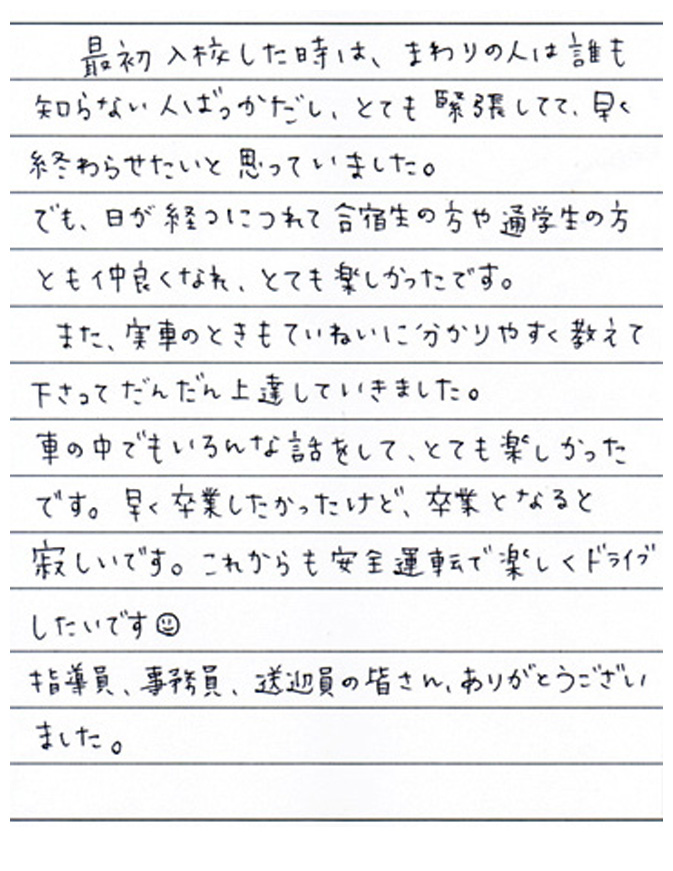 最初入校した時は、まわりの人は誰も
知らない人ばっかだし、とても緊張してて、早く
終わらせたいと思っていました。
でも、日が経つにつれて合宿生の方や通学生の方
とも仲良くなれ、とても楽しかったです。
また、実車のときもていねいに分かりやすく教えて
下さってだんだん上達していきました。
車の中でもいろんな話をして、とても楽しかった
です。早く卒業したかったけど、卒業となると
寂しいです。これからも安全運転で楽しくドライブ
したいです☺
指導員、事務員、送迎員の皆さん、ありがとうござい
ました。